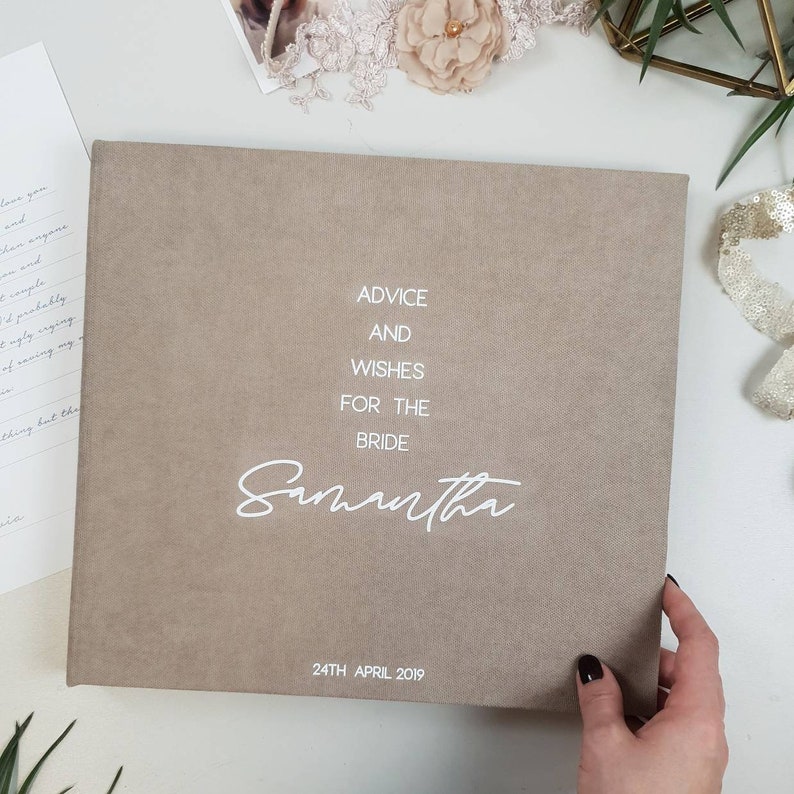 ADVICE
AND
WISHES
FOR THE
BRIDE
Samantha
24TH APRIL 2019
love you
and
than anyone
you and
couple
I'd probably
ugly crying
of saving my
thing but the